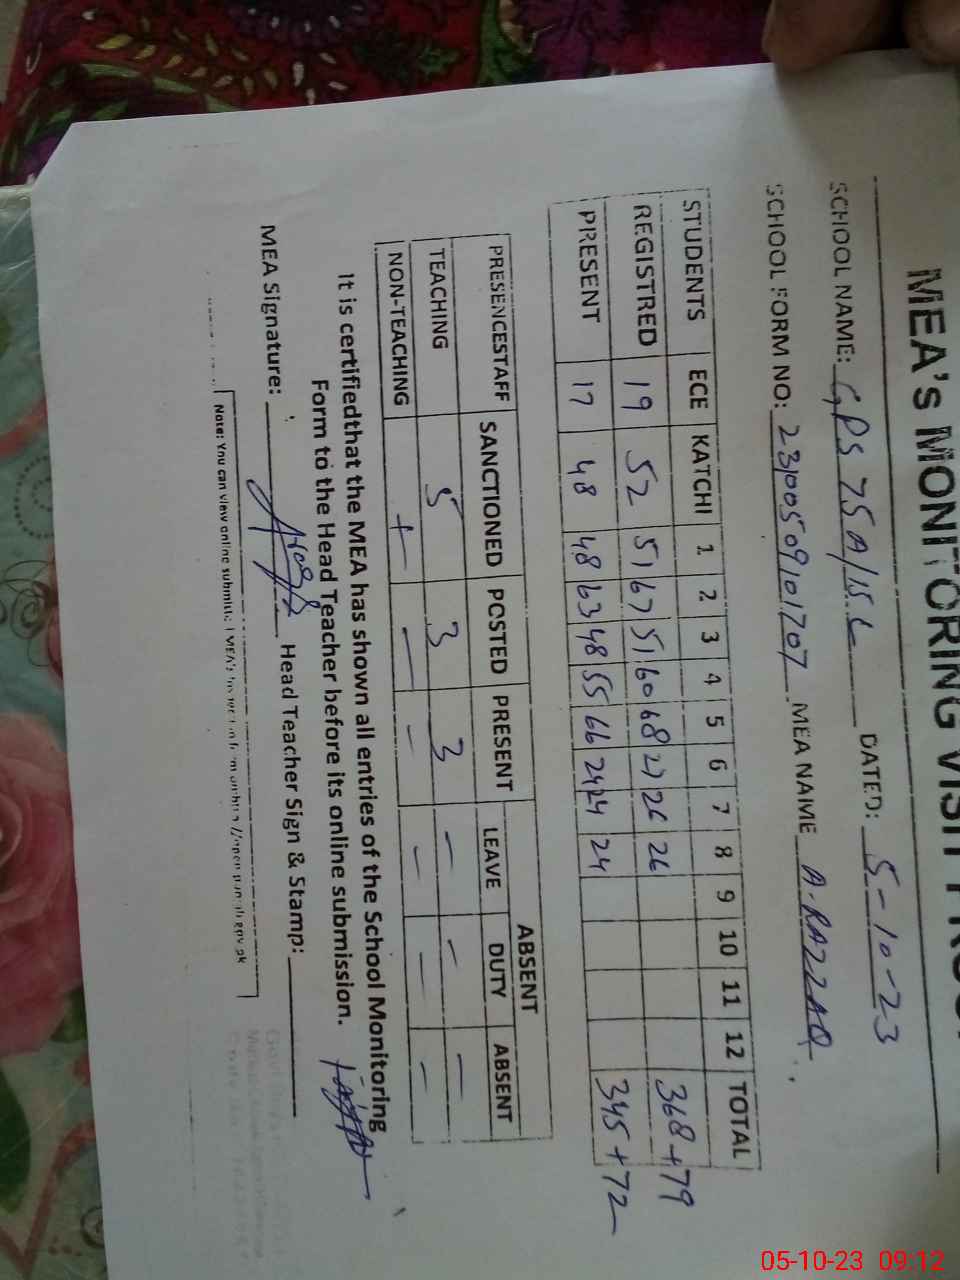 MEA's MONITORING VISIT
SCHOOL NAME: GPS 75A/15L DATED: 5-10-23
SCHOOL FORM NO: 23100509101707 MEA NAME A.RAZZAQ
STUDENTS ECE KATCHI 1 2 3 4 5 6 7 8 9 10 11 12 TOTAL
REGISTRED 19 52 51 67 51 60 68 27 26 26 368+79
PRESENT 17 48 48 63 48 55 66 24 24 24 345+72
ABSENT
PRESENCESTAFF SANCTIONED POSTED PRESENT LEAVE DUTY ABSENT
TEACHING 5 3 3 - - -
NON-TEACHING + - - - - -
It is certifiedthat the MEA has shown all entries of the School Monitoring
Form to the Head Teacher before its online submission.
MEA Signature: Head Teacher Sign & Stamp:
Note: You can view online submitted MEA's
05-10-23 09:12